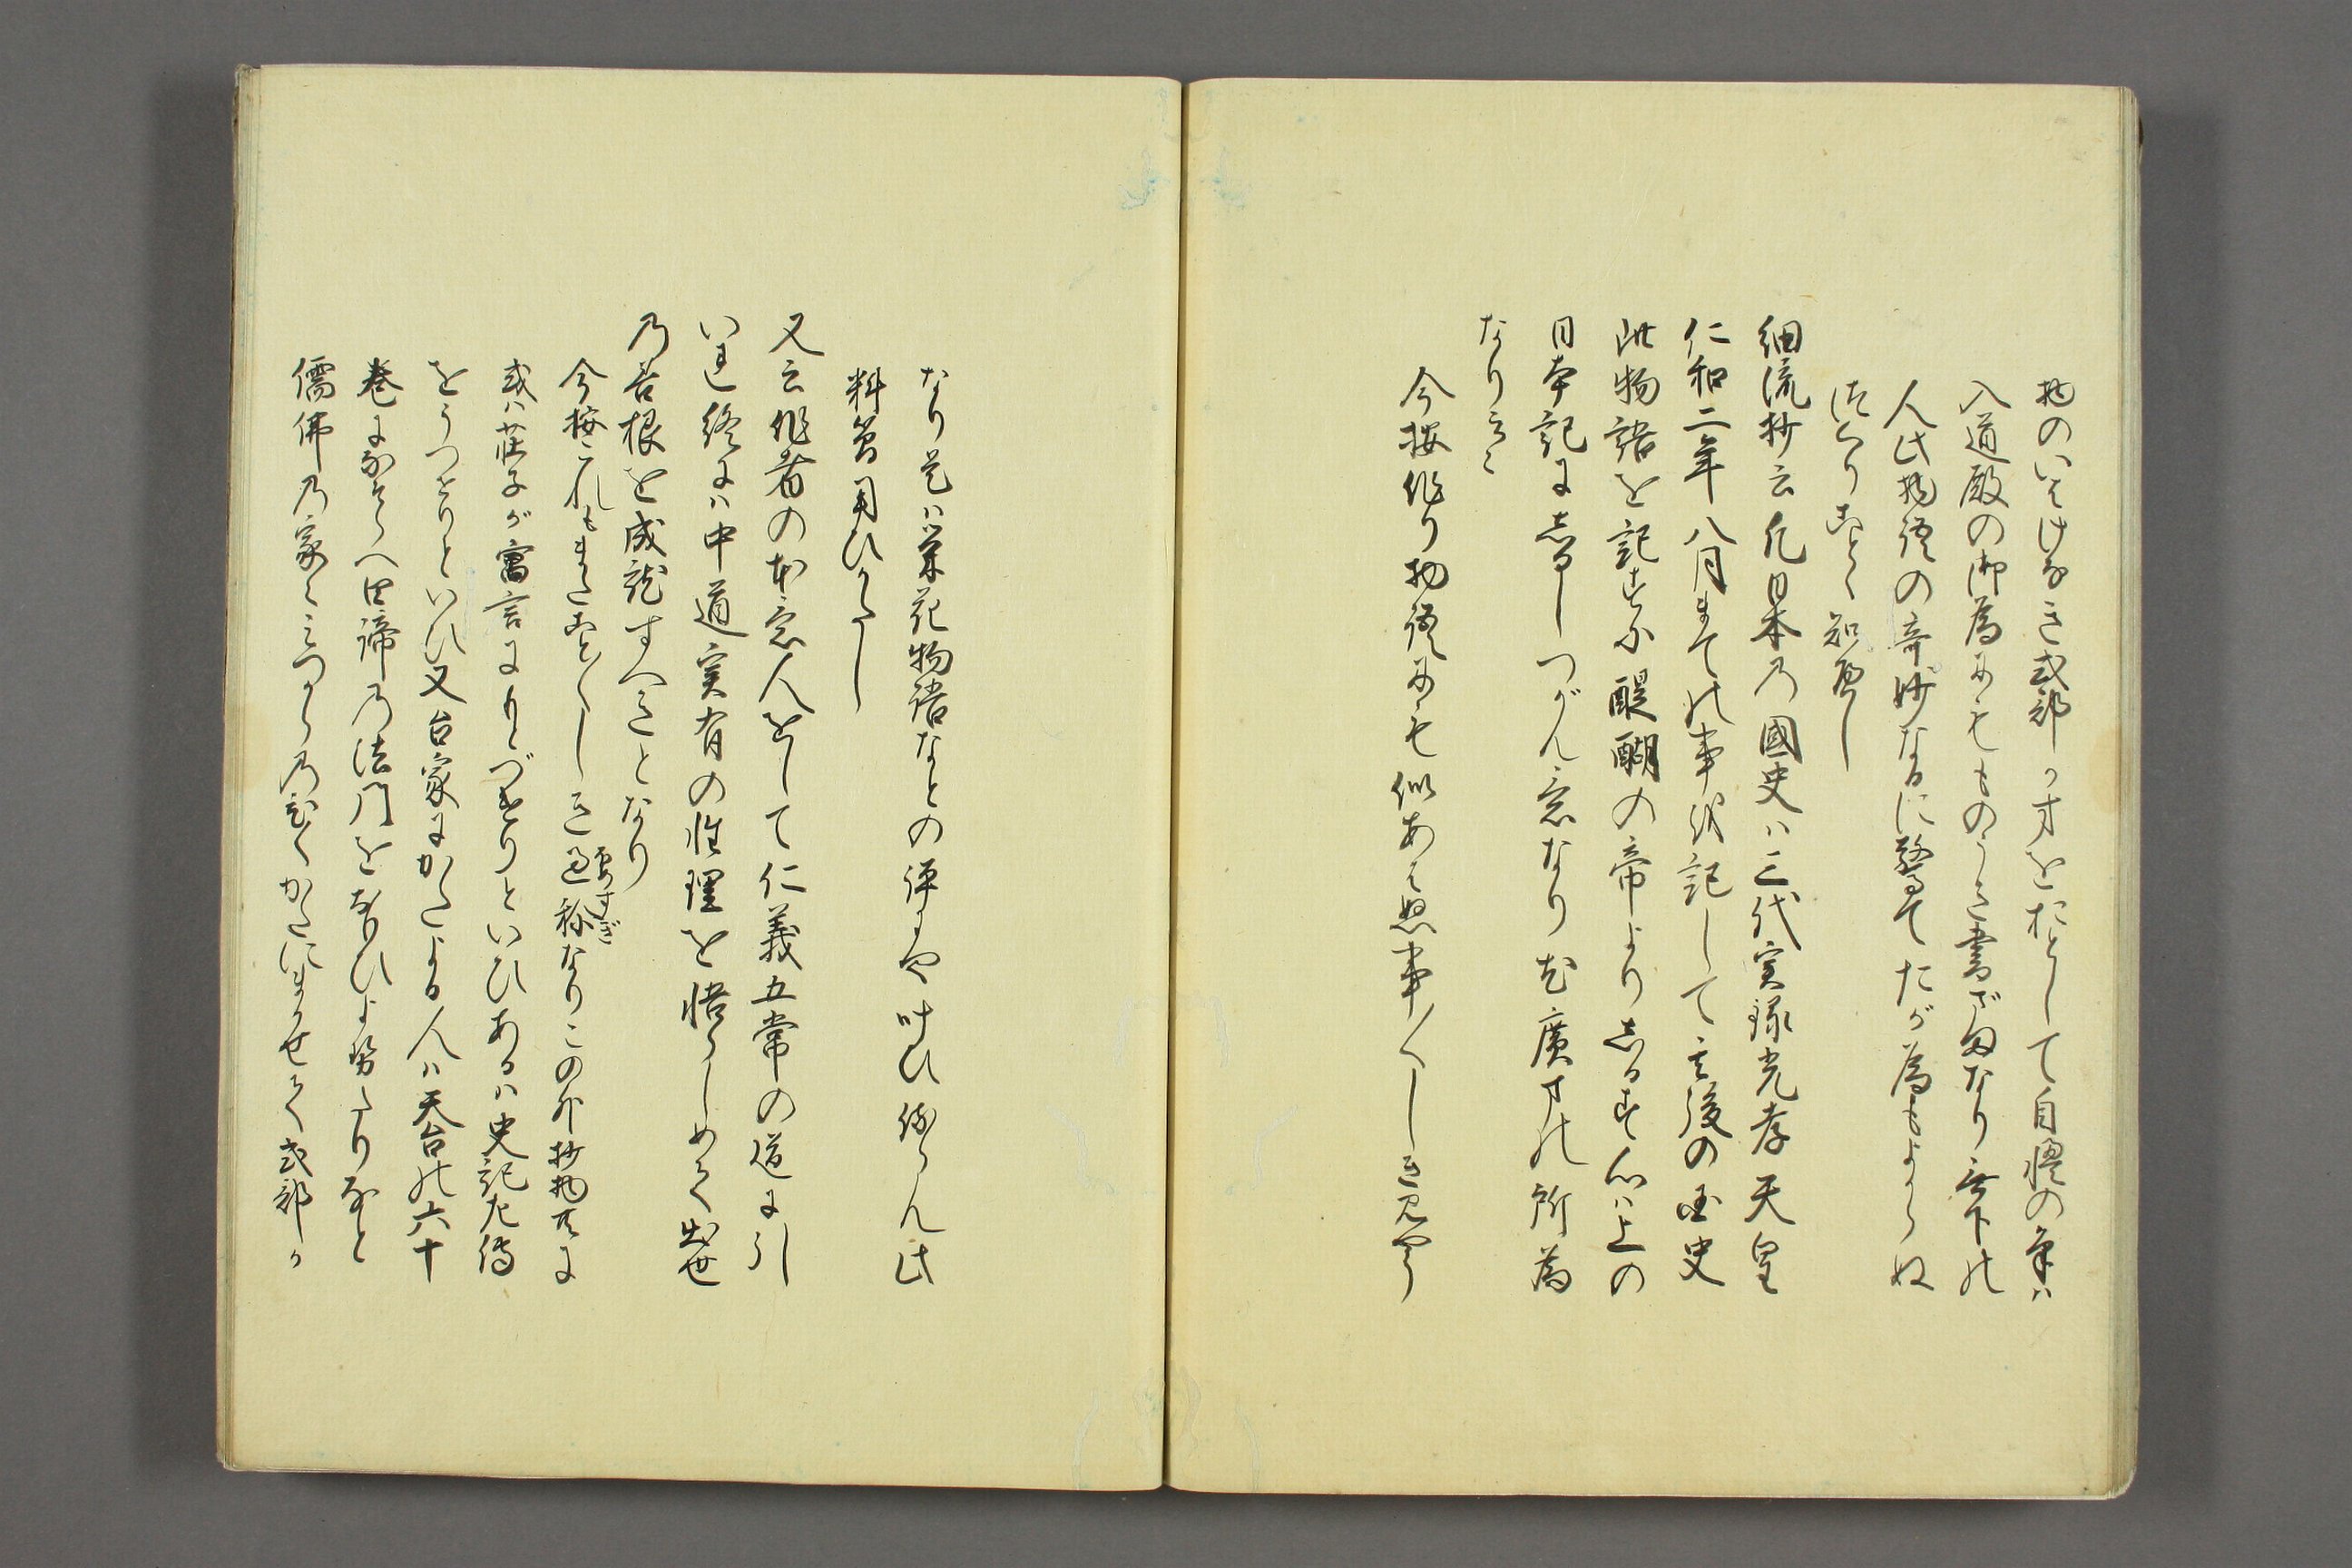 物のいとけなき式部か才をおとして自禮の筆ハ
入道殿の御為にてもものうき書ざまなり無下の
人此物語の奇妙なるに驚てたが為もよからぬ
つくりこと 知へし
細流抄云凡日本乃國史ハ三代実録光孝天皇
仁和二年八月まての事を記して其後の国史
此物語を記すに醍醐の帝よりしるす心ハ上の
日本記にしるしつがん意なり尤廣才の所為
なり云々
今按作り物語にて似あはぬ事〱しき見やう
なり是ハ栄花物語なとの評にや叶ひ侍らん此
料簡用ひかたし
又云作者の本意人をして仁義五常の道に引
いれ終にハ中道実有の性理を悟らしめて出世
乃善根を成就すへきとなり
今按これもまたこと〱しき過称なりこの外抄物共に
或ハ荘子が寓言にもとづけりといひあるハ史記左傳
をうつせりといひ又台家にかたよる人ハ天台の六十
巻になそらへ四諦乃法門をならひよ勢たりなと
儒佛乃家々みつから乃むくかたにまかせて式部か